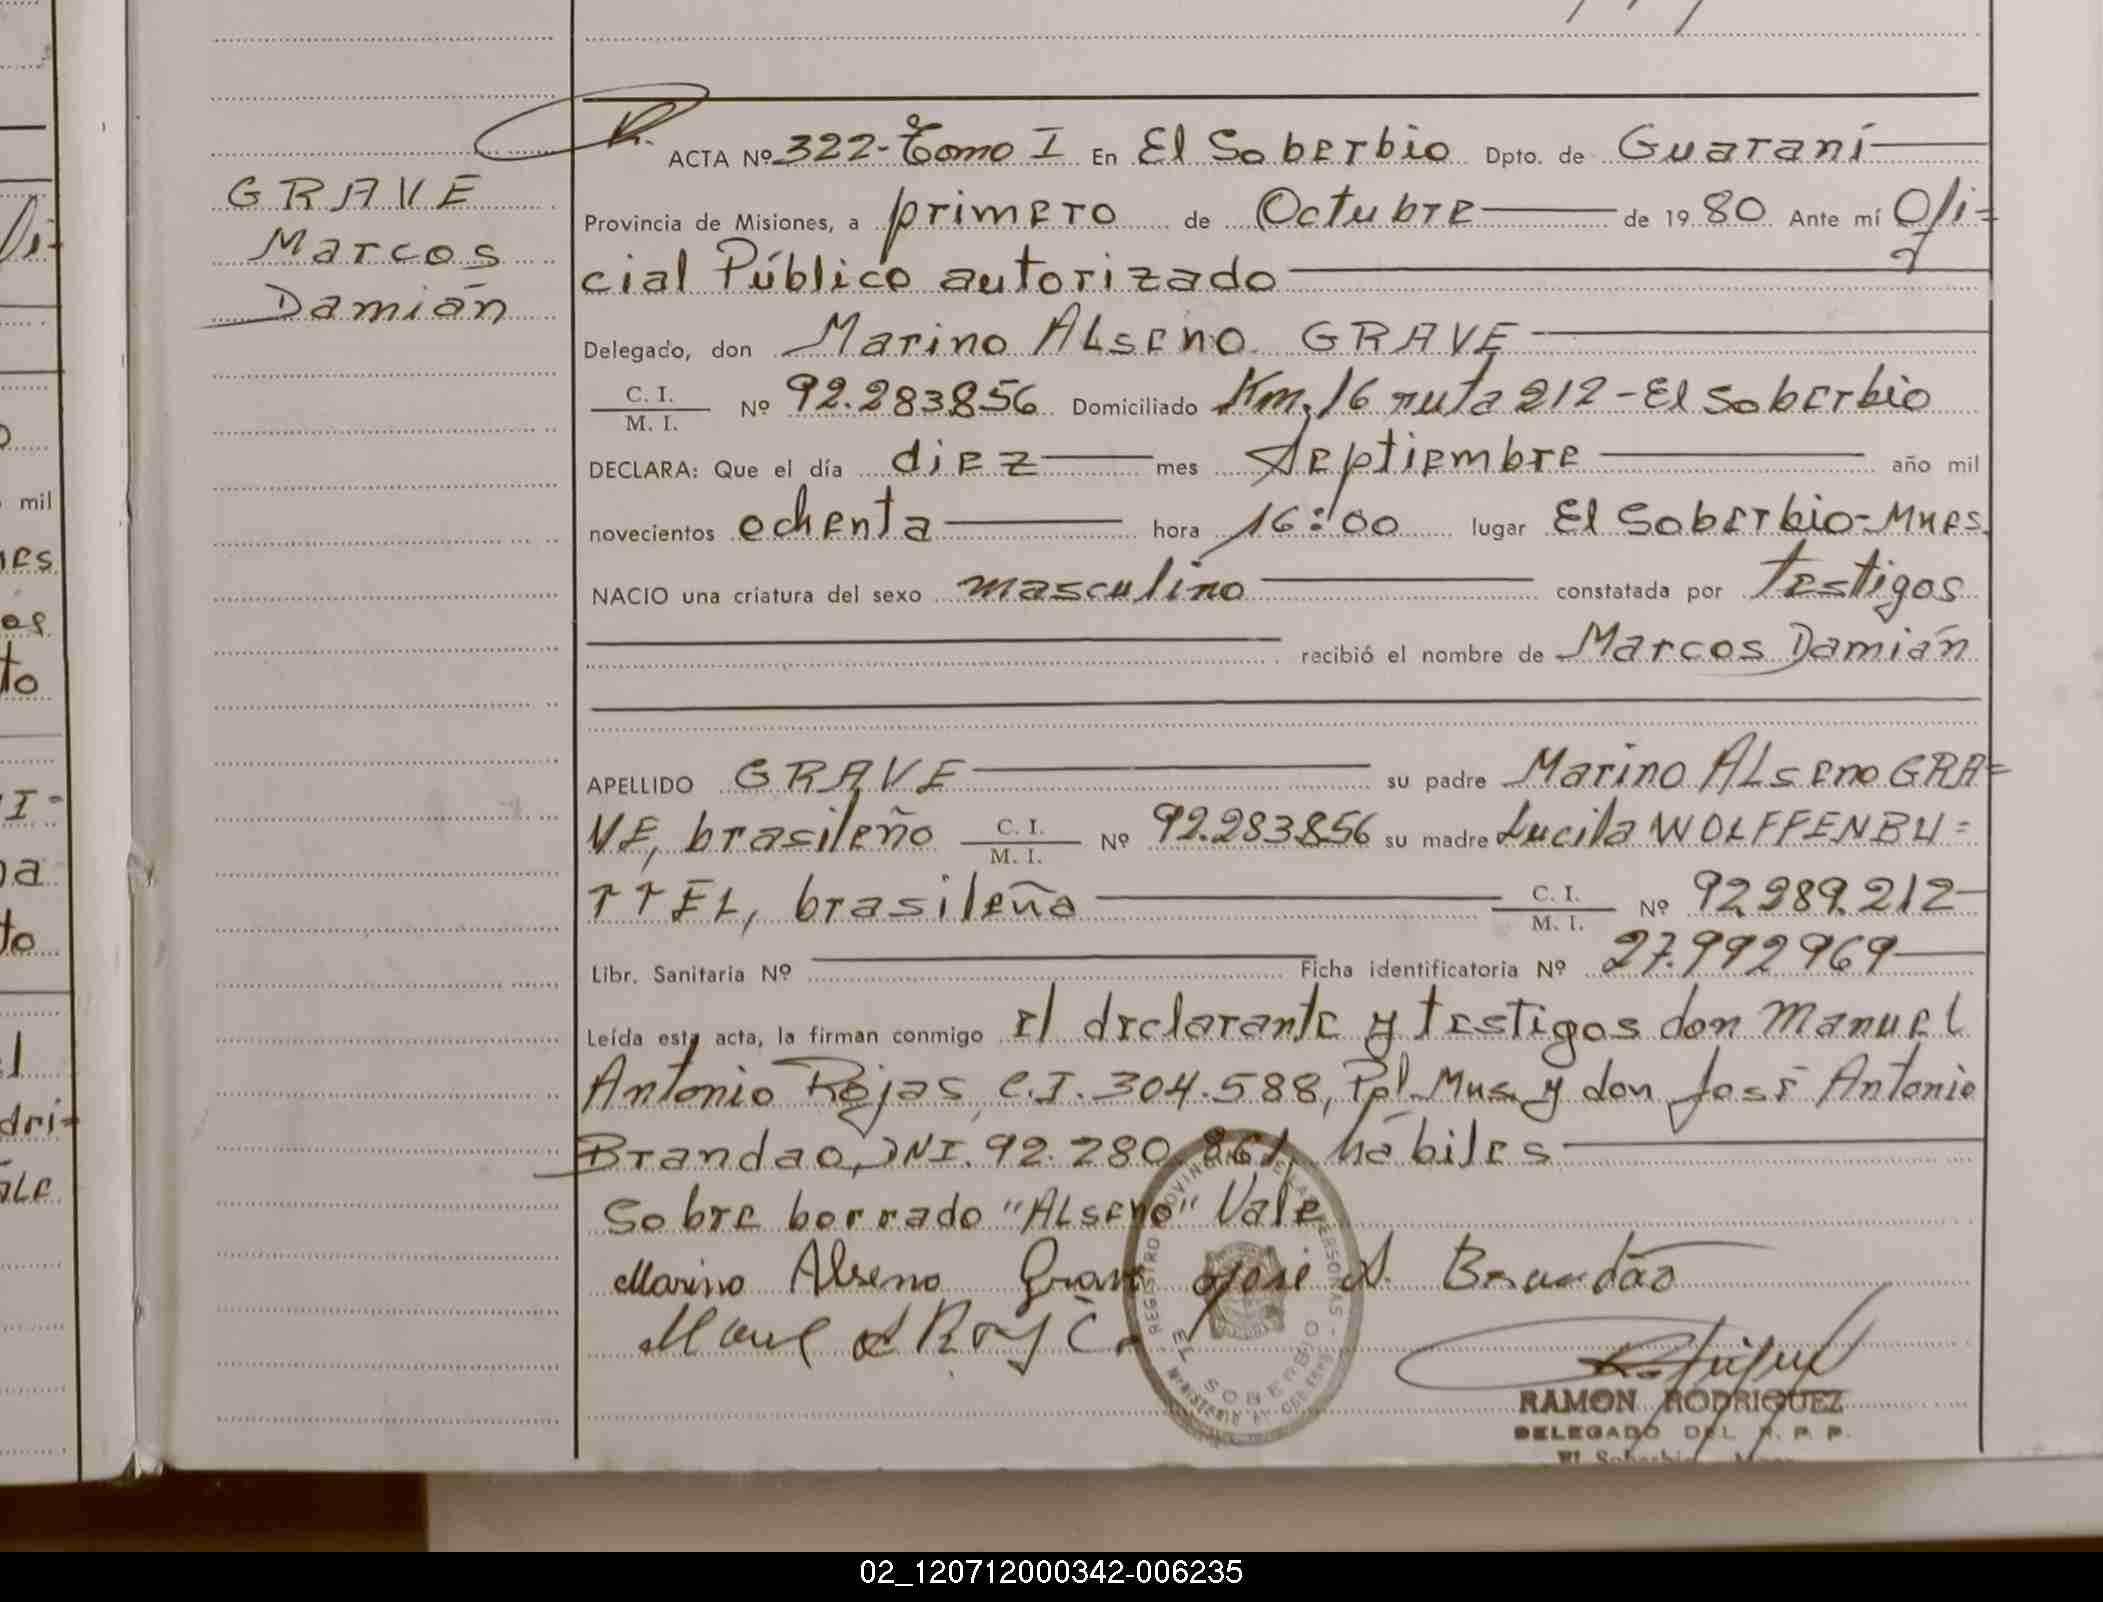 GRAVE
Marcos
Damián
ACTA Nº 322-Tomo I En El Soberbio Dpto. de Guaraní
Provincia de Misiones, a primero de Octubre de 19 80 Ante mí Ofi=
cial Público autorizado
Delegado, don Marino ALseno GRAVE
C. I.
M. I. Nº 92.283.856 Domiciliado Km. 16 ruta 212-El Soberbio
DECLARA: Que el día diez mes Septiembre año mil
novecientos ochenta hora 16:00 lugar El Soberbio-Mnes.
NACIO una criatura del sexo masculino constatada por testigos
recibió el nombre de Marcos Damián
APELLIDO GRAVE su padre Marino ALseno GRA=
VE, brasileño C. I. M. I. Nº 92.283.856 su madre Lucila WOLFFENBU=
TTEL, brasileña C. I. M. I. Nº 92.289.212
Libr. Sanitaria Nº Ficha identificatoria Nº 27.992969
Leída esta acta, la firman conmigo el declarante y testigos don Manuel
Antonio Rojas, C.I. 304.588, Pol. Mns. y don José Antonio
Brandao, DNI. 92.280.861, hábiles
Sobre borrado "ALseno" Vale
Marino Alseno Grave José A. Brandão
REGISTRO PROVINCIAL DE LAS PERSONAS
EL SOBERBIO
RAMON RODRIGUEZ
DELEGADO DEL R. P. P.
El Soberbio - Mnes.
mil
nes
to
I-
na
to
dri=
ale
02_120712000342-006235